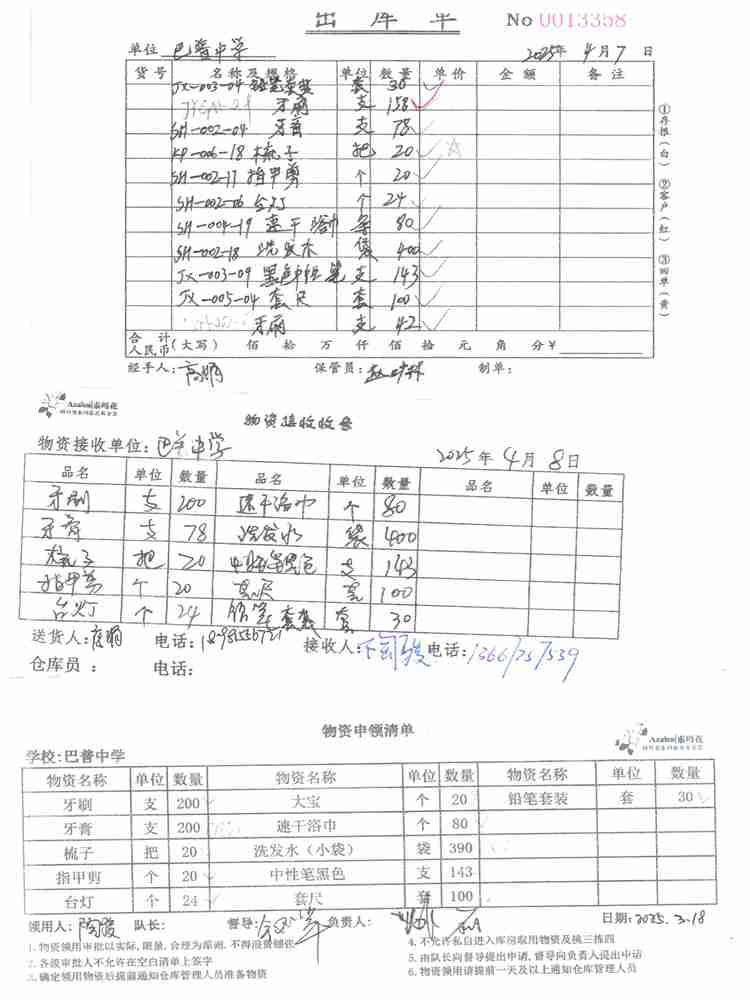 出库单 No 0013358
单位 巴普中学 2025年 4月 7日
货号 名称及规格 单位 数量 单价 金额 备注
JX-003-04 铅笔套装 套 30
牙刷 支 158
SH-002-04 牙膏 支 78
KP-006-18 梳子 把 20
SH-002-17 指甲剪 个 20
SH-002-06 台灯 个 24
SH-004-19 速干浴巾 条 80
SH-002-18 洗发水 袋 400
JX-003-09 黑色中性笔 支 143
JX-005-04 套尺 套 100
牙刷 支 42
合计人民币(大写) 佰 拾 万 仟 佰 拾 元 角 分¥
经手人: 保管员: 制单:
①存根(白) ②客户(红) ③回单(黄)
Azalea|索玛花
物资接收收条
物资接收单位:巴普中学 2025年 4月 8日
品名 单位 数量 品名 单位 数量 品名 单位 数量
牙刷 支 200 速干浴巾 个 80
牙膏 支 78 洗发水 袋 400
梳子 把 20 中性笔黑色 支 143
指甲剪 个 20 套尺 套 100
台灯 个 24 铅笔套装 套 30
送货人: 电话: 接收人: 电话:
仓库员: 电话:
物资申领清单
Azalea|索玛花
学校:巴普中学
物资名称 单位 数量 物资名称 单位 数量 物资名称 单位 数量
牙刷 支 200 大宝 个 20 铅笔套装 套 30
牙膏 支 200 速干浴巾 个 80
梳子 把 20 洗发水(小袋) 袋 390
指甲剪 个 20 中性笔黑色 支 143
台灯 个 24 套尺 套 100
领用人: 陶骏 队长: 督导: 负责人: 日期:2025.3.18
1.物资领用审批以实际,限量,合理为原则,不得浪费铺张
2.各级审批人不允许在空白清单上签字
3.确定领用物资后提前通知仓库管理人员准备物资
4.不允许私自进入库房取用物资及挑三拣四
5.由队长向督导提出申请,督导向负责人提出申请
6.物资领用请提前一天及以上通知仓库管理人员